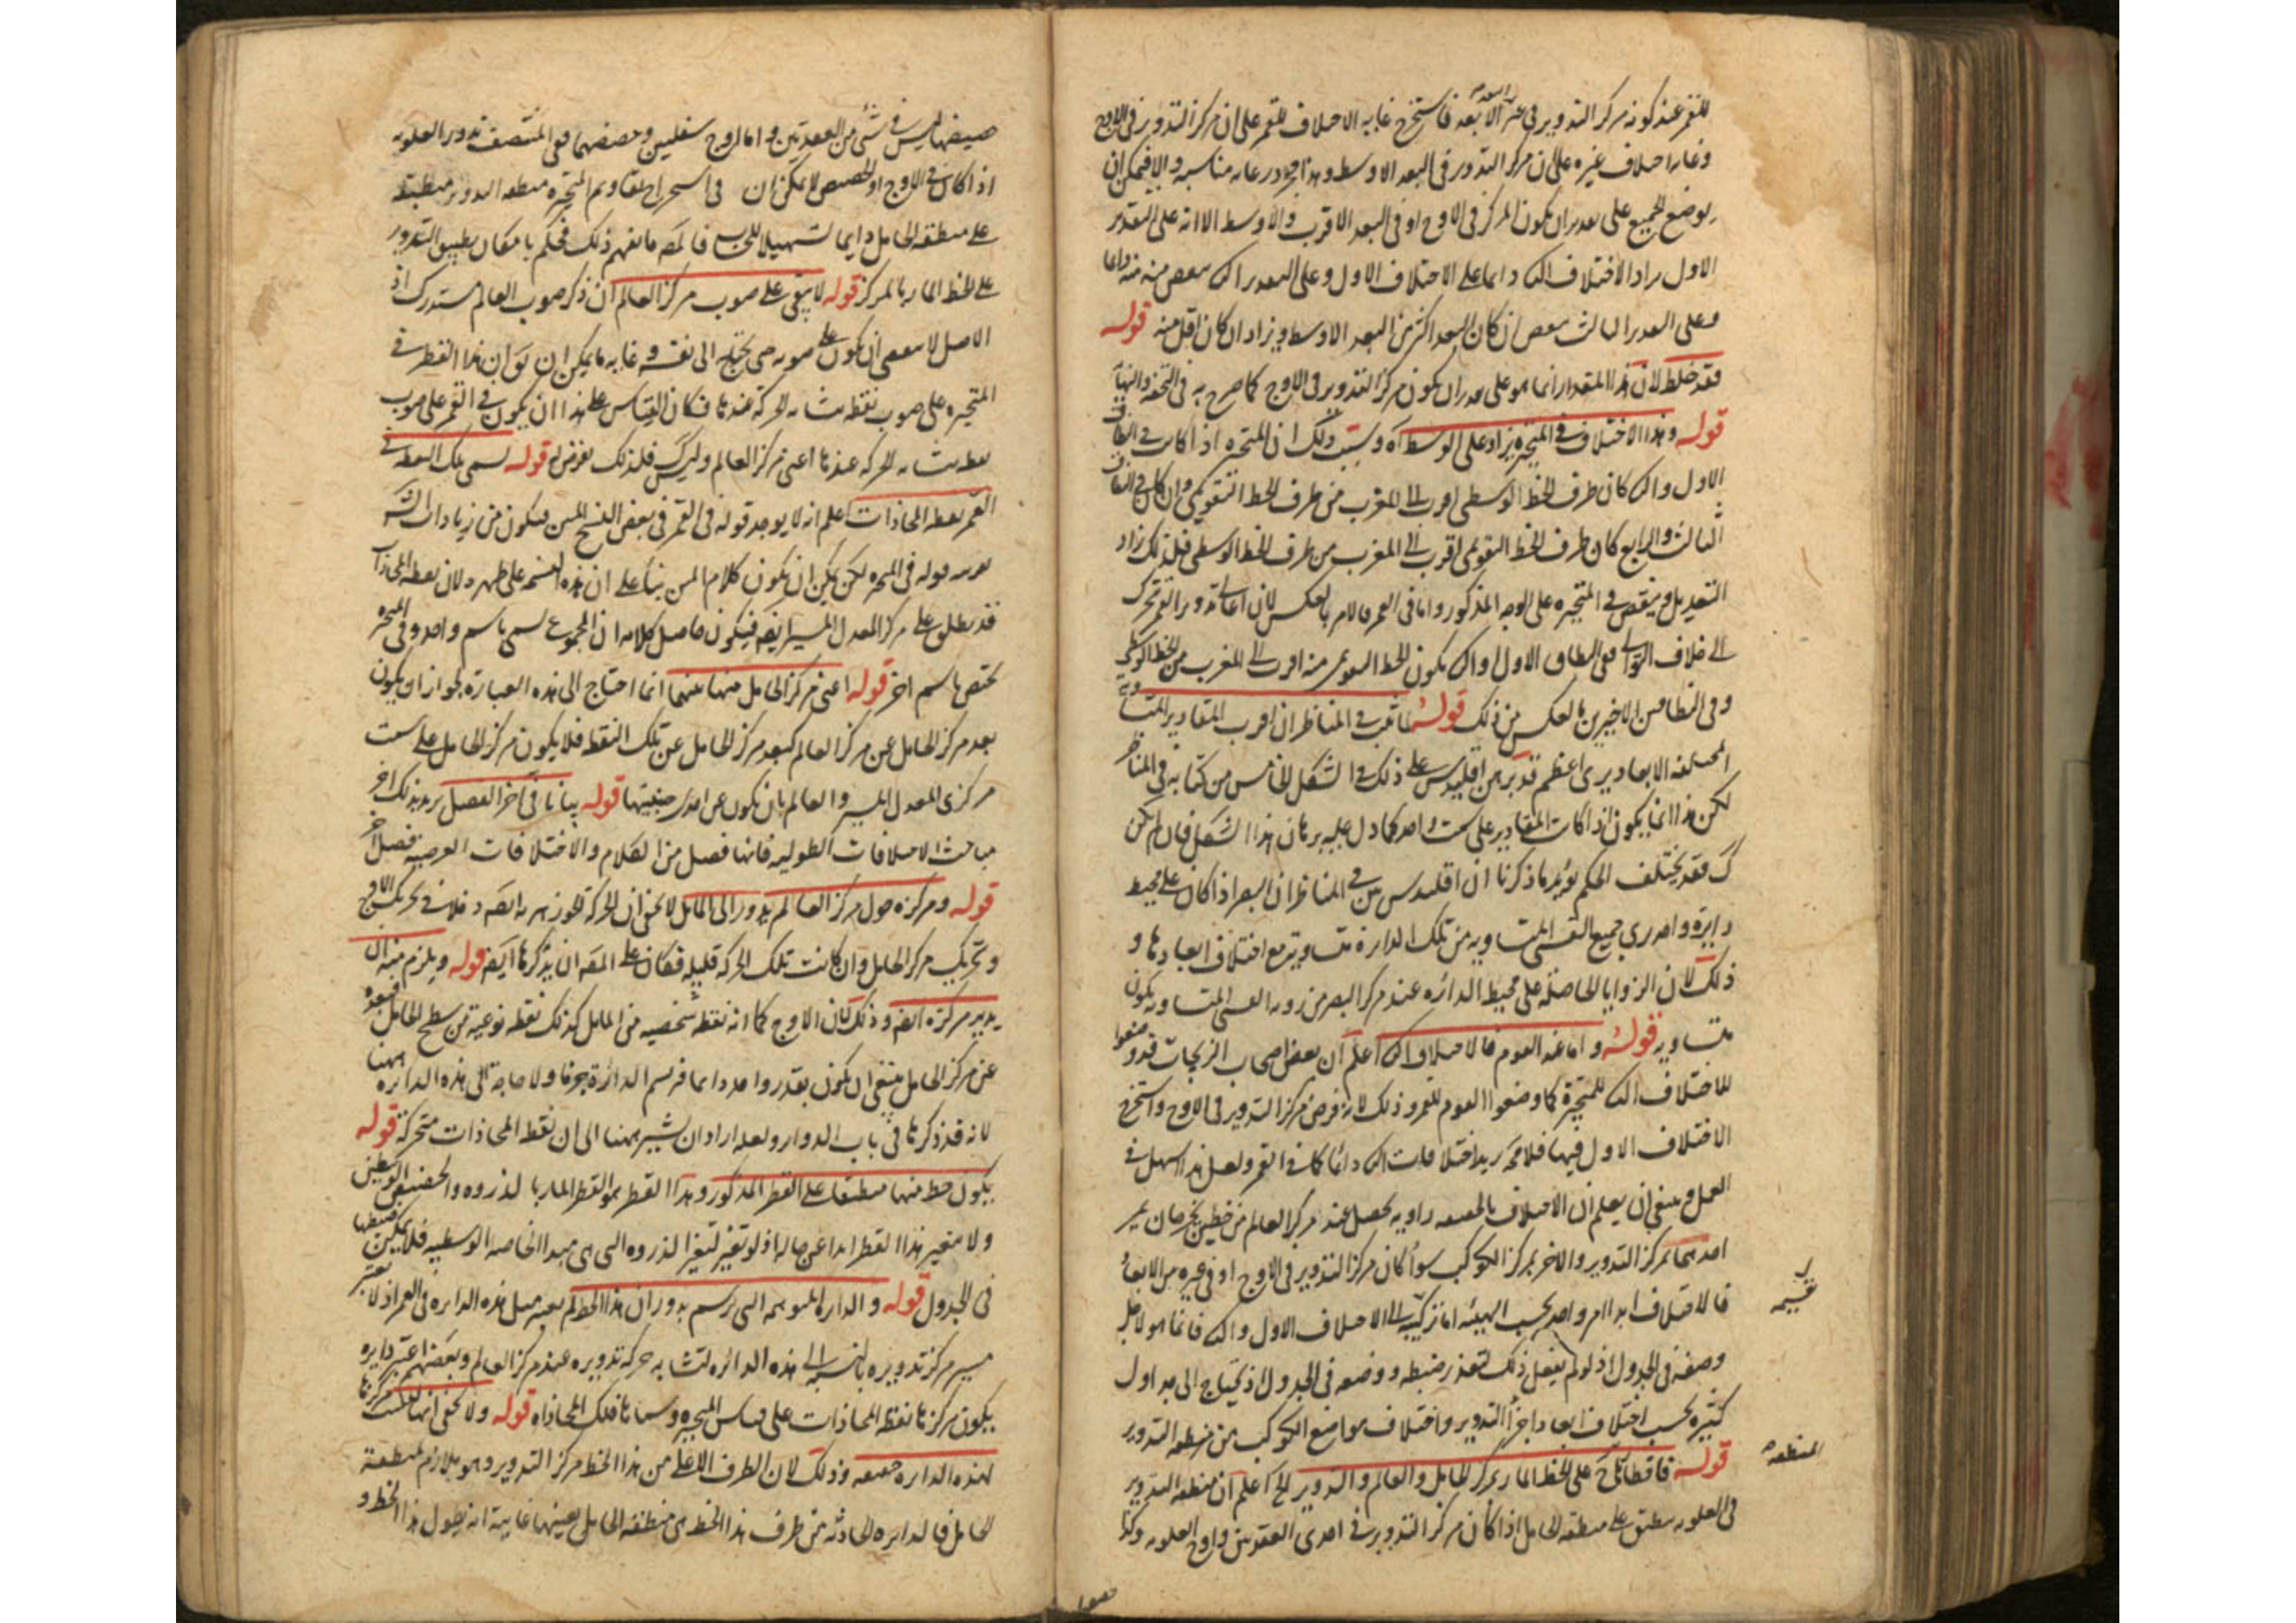 للقمر عند كون مركز التدوير في فاستخرج غاية الاختلاف للقمر على ان مركز التدوير في الاوج
وغاية اختلاف غيره على ان مركز التدوير في البعد الاوسط وهذا
يوضع الجميع على تقدير ان يكون المركز في الاوج او في البعد الاقرب والاوسط الا انه على التقدير
الاول يزاد الاختلاف الثاني دائما على الاختلاف الاول وعلى التقدير الثاني ينقص منه دائما
وعلى التقدير الثالث ينقص ان كان البعد اكثر من البعد الاوسط ويزاد ان كان اقل منه قوله
فقد خلط لان هذا المقدار انما هو على تقدير ان يكون مركز التدوير في الاوج كما صرح به في التحفة والنهاية
قوله وهذا الاختلاف في المتحيرة يزاد على الوسط آه وسبب ذلك ان المتحيرة اذا كانت في النطاق
الاول والثاني كان طرف الخط الوسطي اقرب الى المغرب من طرف الخط التقويمي وان كان في النطاق
الثالث والرابع كان طرف الخط التقويمي اقرب الى المغرب من طرف الخط الوسطي فلذلك زاد
التعديل وينقص في المتحيرة على الوجه المذكور واما في القمر فالامر بالعكس لان اعالي تدوير القمر تتحرك
الى خلاف التوالي ففي النطاق الاول والثاني يكون الخط التقويمي منه اقرب الى المغرب من الخط الوسطي
وفي النطاقين الاخيرين بالعكس من ذلك قوله لما ثبت في المناظر ان اقرب المقادير المتساوية
المختلفة الابعاد يرى اعظم قد برهن اقليدس على ذلك في الشكل الخامس من كتابه في المناظر
لكن هذا انما يكون اذا كانت المقادير على سمت واحد كما دل عليه برهان هذا الشكل فان لم يكن
كك فقد يختلف الحكم يؤيد ما ذكرنا ان اقليدس بين في المناظر ان البصر اذا كان على محيط
دايرة واحد رى جميع القسي المتساوية من تلك الدايرة متساوية مع اختلاف ابعادها و
ذلك لان الزوايا الحاصلة على محيط الدائرة عند مركز البصر من رؤية القسي المتساوية يكون
متساوية قوله واما عند القوم فالاختلاف الثاني اعلم ان بعض اصحاب الزيجات قد وضعوا
للاختلاف الثاني للمتحيرة كما وضعوا القوم للقمر وذلك لانه فرض مركز التدوير في الاوج واستخرج
الاختلاف الاول فيها فلا محة يزيد اختلافات الثاني دائما كما في القمر ولعل هذا اسهل في
العمل وينبغي ان يعلم ان الاختلاف بالحقيقة زاوية يحصل عند مركز العالم من خطين يخرجان يمر
احدهما بمركز التدوير والاخر بمركز الكوكب سواء كان مركز التدوير في الاوج او في غيره من الابعاد
فالاختلاف ابدا امر واحد بحسب الهيئة اما تركيبه الى الاختلاف الاول والثاني فانما هو لاجل
وضعه في الجدول اذ لو لم يفعل ذلك لتعذر ضبطه ووضعه في الجدول اذ يحتاج الى جداول
كثيرة بحسب اختلاف ابعاد اجزاء التدوير واختلاف مواضع الكوكب من منطقة التدوير
قوله فاقطار على الخط المار بمركز الحامل والعالم والتدوير الخ اعلم ان منطقة التدوير
في العلوية ينطبق على منطقة الحامل اذا كان مركز التدوير في احدى العقدتين واوج العلوية وكذا
المنطقة
حضيضها ليس في شيء من العقدتين واما اوج سفليين وحضيضهما ففي المنتصف تدوير العلوية
اذا كان في الاوج او الحضيض لا يمكن ان في استخراج تقاويم المتحيرة منطقة التدوير منطبقة
على منطقة الحامل دايما تسهيلا للحساب فالمصر ذلك فحكم بامكان تطبيق التدوير
على الخط المار بالمركز قوله لا يبقى على صوب مركز العالم ان ذكر صوب العالم مستدرك اذ
الاصل لا يقتضي ان يكون على صوبه حتى يحتاج الى نفيه وغاية ما يمكن ان يق ان هذا القطر في
المتحيرة على صوب نقطة تشابه الحركة عندها فكان القياس على هذا ان يكون في القمر على صوب
نقطة تشابه الحركة عندها اعني مركز العالم وليس كك فلذلك تعرض له قوله تسمى تلك النقطة في
القمر نقطة المحاذات اعلم انه لا يوجد قوله في القمر في بعض النسخ المتن فيكون من زيادات الش
قوله في المتحيرة لكن يمكن ان يكون كلام المتن بناء على ان هذه التسمية على لان نقطة المحاذات
قد يطلق على مركز المعدل المسير ايضه فيكون حاصل كلامه ان المجموع تسمى باسم واحد وفي المتحيرة
يختص باسم اخر قوله اعني مركز الحامل منها بينهما انما احتاج الى هذه العبارة لجواز ان يكون
بعد مركز الحامل عن مركز العالم كبعد مركز الحامل عن تلك النقطة فلا يكون مركز الحامل على سمت
مركزي المعدل المسير والعالم بان يكون عن احدى جنبيتها قوله بياننا في آخر الفصل يريد بذلك اخر
مباحث الاختلافات الطولية فانها فصل من الكلام والاختلافات العرضية فصل آخر
قوله ومركزه حول مركز العالم يدور الى المائل لا يخفى ان لحركة الجوزهر ايضه دخلا في تحريك الاوج
وتحريك مركز الحامل وان كانت تلك الحركة قليلة فكان على المصه ان يذكرها ايضه قوله ويلزم منه ان
يدير مركزه ايضه وذلك لان الاوج كما انه نقطة شخصيه من المائل كذلك نقطة نوعية من سطح الحامل فبعده
عن مركز الحامل ينبغي ان يكون بقدر واحد دايما فرسم الدائرة بحركتها ولا حاجة الى هذه الدائرة ههنا
لانه قد ذكرها في باب الدواير ولعله اراد ان يشير ههنا الى ان نقط المحاذات متحركة قوله
يكون خط منها منطبقا على القطر المذكور وهذا القطر هو القطر المار بالذروة والحضيض الوسطيين
ولا يتغير هذا القطر ابدا عن حاله اذ لو تغير لتغير الذروة التي هي مبدا الخاصة الوسطية فلا يمكن ضبطها
في الجدول قوله والدائرة الموهمة التي ترسم بدوران هذا الخط لم يعتبر مثل هذه الدايرة في القمر اذ لا يعتبر
مسير مركز تدويره بالنسبة الى هذه الدائرة لتشابه حركة تدويره عند مركز العالم وبعضهم اعتبر دايرة
يكون مركزها نقطة المحاذات على قياس المتحيرة وسماها فلك المحاذاة قوله ولا يخفى انها ليست مركزها
لهذه الدايرة حقيقة وذلك لان الطرف الاعلى من هذا الخط مركز التدوير وهو ملازم لمنطقة
الحامل فالدايرة الحادثة من طرف هذا الخط هي منطقة الحامل بعينها غايته انه يطول هذا الخط و